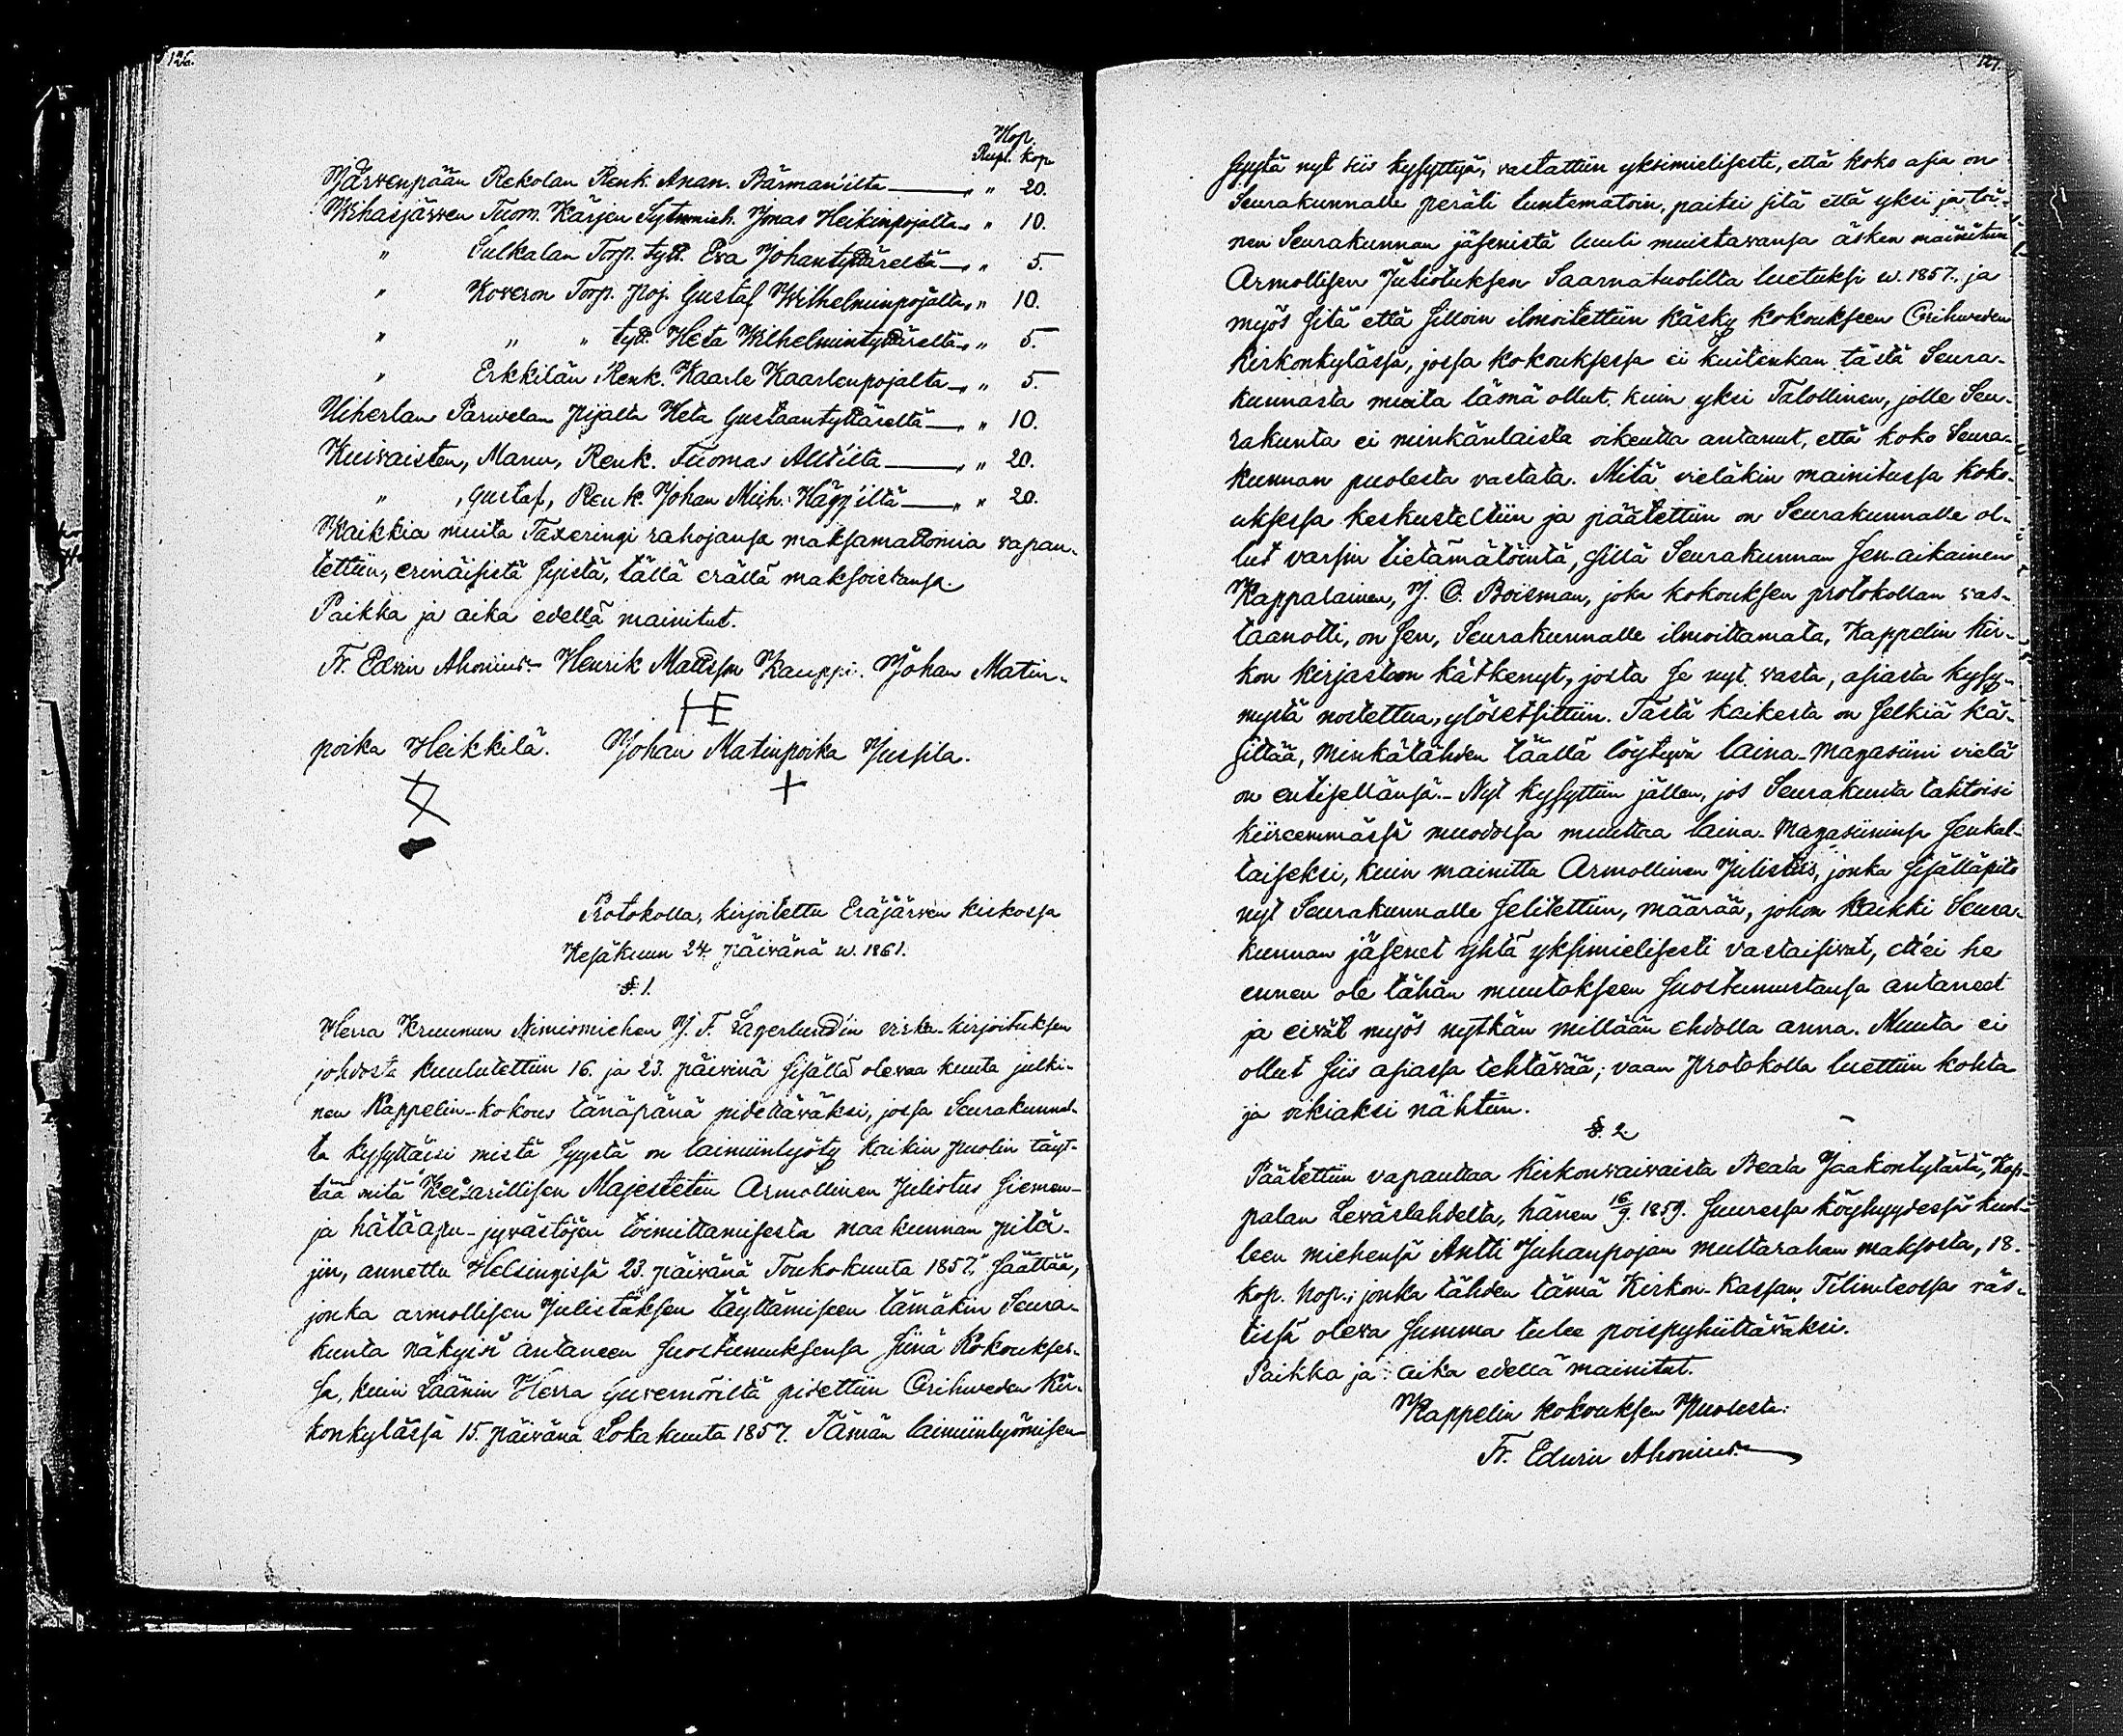 126.
Hop.
Rupl. kop.
Järwenpään Rekolan Renk. Anan. Bärman'ilta — " 20.
Wihasjärwen Tuom. Kärjen Sytmieh. Jonas Heikinpojalta " 10.
" Sulkalan Torp. tytt. Ewa Johantyttäreltä — " 5.
" Koweron Torp. Poj. Gustaf Wilhelminpojalta " 10.
" " " tytt. Heta Wilhelmintyttäreltä " 5.
" Erkkilän Renk. Kaarle Kaarlenpojalta — " 5.
Uiherlan Parwelan pijalta Heta Gustaantyttäreltä — " 10.
Kuiwaisten, Manu, Renk. Tuomas Alltilta — " 20.
" , Gustaf, Renk. Johan Mich. Hägg'iltä — " 20.
Kaikkia muita Taxeringi rahojansa maksamattomia vapau-
tettiin, erinäisistä syistä, tällä erällä maksoistansa.
Paikka ja aika edellä mainitut.
Fr. Edvin Ahonius. Henrik Mattsson Kauppi. Johan Matin-
HE
poika Heikkilä. Johan Matinpoika Jussila.
+
Protokolla, kirjoitettu Eräjärwen kirkossa
Kesäkuun 24. päivänä w. 1861.
§. 1.
Herra Kruunun Nimismiehen J. F. Lagerlund'in virka-kirjoituksen
johdosta kuulutettiin 16. ja 23. päivinä sisällä olewaa kuuta julki-
nen Kappelin-kokous tänäpänä pidettäwäksi, jossa Seurakunnal-
ta kysyttäisi mistä syystä on laiminlyöty kaikin puolin täyt-
tää mitä "Keisarillisen Majestetin Armollinen Julistus Siemen-
ja hätäapu-jywästöjen toimittamisesta maakunnan pitä-
jiin, annettu Helsingissä 23. päivänä Toukokuuta 1857." säättää,
jonka armollisen Julistuksen täyttämiseen tämäkin Seura-
kunta näkyisi antaneen suostumuksensa siinä Kokoukses-
sa, kuin Läänin Herra Guvernöriltä pidettiin Orihweden Kir-
konkylässä 15. päivänä Lokakuuta 1857. Tämän laiminlyömisen
127.
syytä nyt siis kysyttyä, vastattiin yksimielisesti, että koko asia on
Seurakunnalle peräti tuntematoin, paitsi sitä että yksi ja toi-
nen Seurakunnan jäsenistä luuli muistavansa äsken mainitun
Armollisen Julistuksen Saarnatuolilta luetuksi w. 1857. ja
myös sitä että silloin ilmoitettiin käsky kokoukseen Orihweden
kirkonkylässä, jossa kokouksessa ei kuitenkan tästä Seura-
kunnasta muita läsnä ollut, kuin yksi Talollinen, jolle Seu-
rakunta ei minkänlaista oikeutta antanut, että koko Seura-
kunnan puolesta vastata. Mitä vieläkin mainitussa koko-
uksessa keskusteltiin ja päätettiin on Seurakunnalle ol-
lut varsin tietämätöintä, sillä Seurakunnan sen aikainen
Kappalainen, J. O. Boisman, joka kokouksen protokollan vas-
taanotti, on sen, Seurakunnalle ilmoittamata, Kappelin kir-
kon kirjastoon kätkenyt, josta se nyt vasta, asiasta kysy-
mystä nostettua, ylösetsittiin. Tästä kaikesta on selkiä kä-
sittää, minkätähden täällä löytywä laina-Magasiini vielä
on entisellänsä. Nyt kysyttiin jällen, jos Seurakunta tahtoisi
kiireemmässä muodossa muuttaa laina-Magasiininsa senkal-
taiseksi, kuin mainittu Armollinen Julistus, jonka sisälläpito
nyt Seurakunnalle selitettiin, määrää, johon kaikki Seura-
kunnan jäsenet yhtä yksimielisesti vastaisivat, ett'ei he
ennen ole tähän muutokseen suostumustansa antaneet
ja eiwät myös nytkän millään ehdolla anna. Muuta ei
ollut siis asiassa tehtäwää, vaan protokolla luettiin kohta
ja oikiaksi nähtiin.
§. 2.
Päätettiin vapauttaa Kirkonwaiwaista Beata Jaakontytärtä, Kap-
palan Lewäslahdelta, hänen 16/9. 1859. suuressa köyhyydessä kuol-
leen miehensä Antti Juhanpojan multarahan maksosta, 18.
kop. hop., jonka tähden tämä Kirkon-Kassan Tilinteossa räs-
tissä olewa summa tulee poispyhittäwäksi.
Paikka ja aika edellä mainitut.
Kappelin kokouksen puolesta:
Fr. Edvin Ahonius.